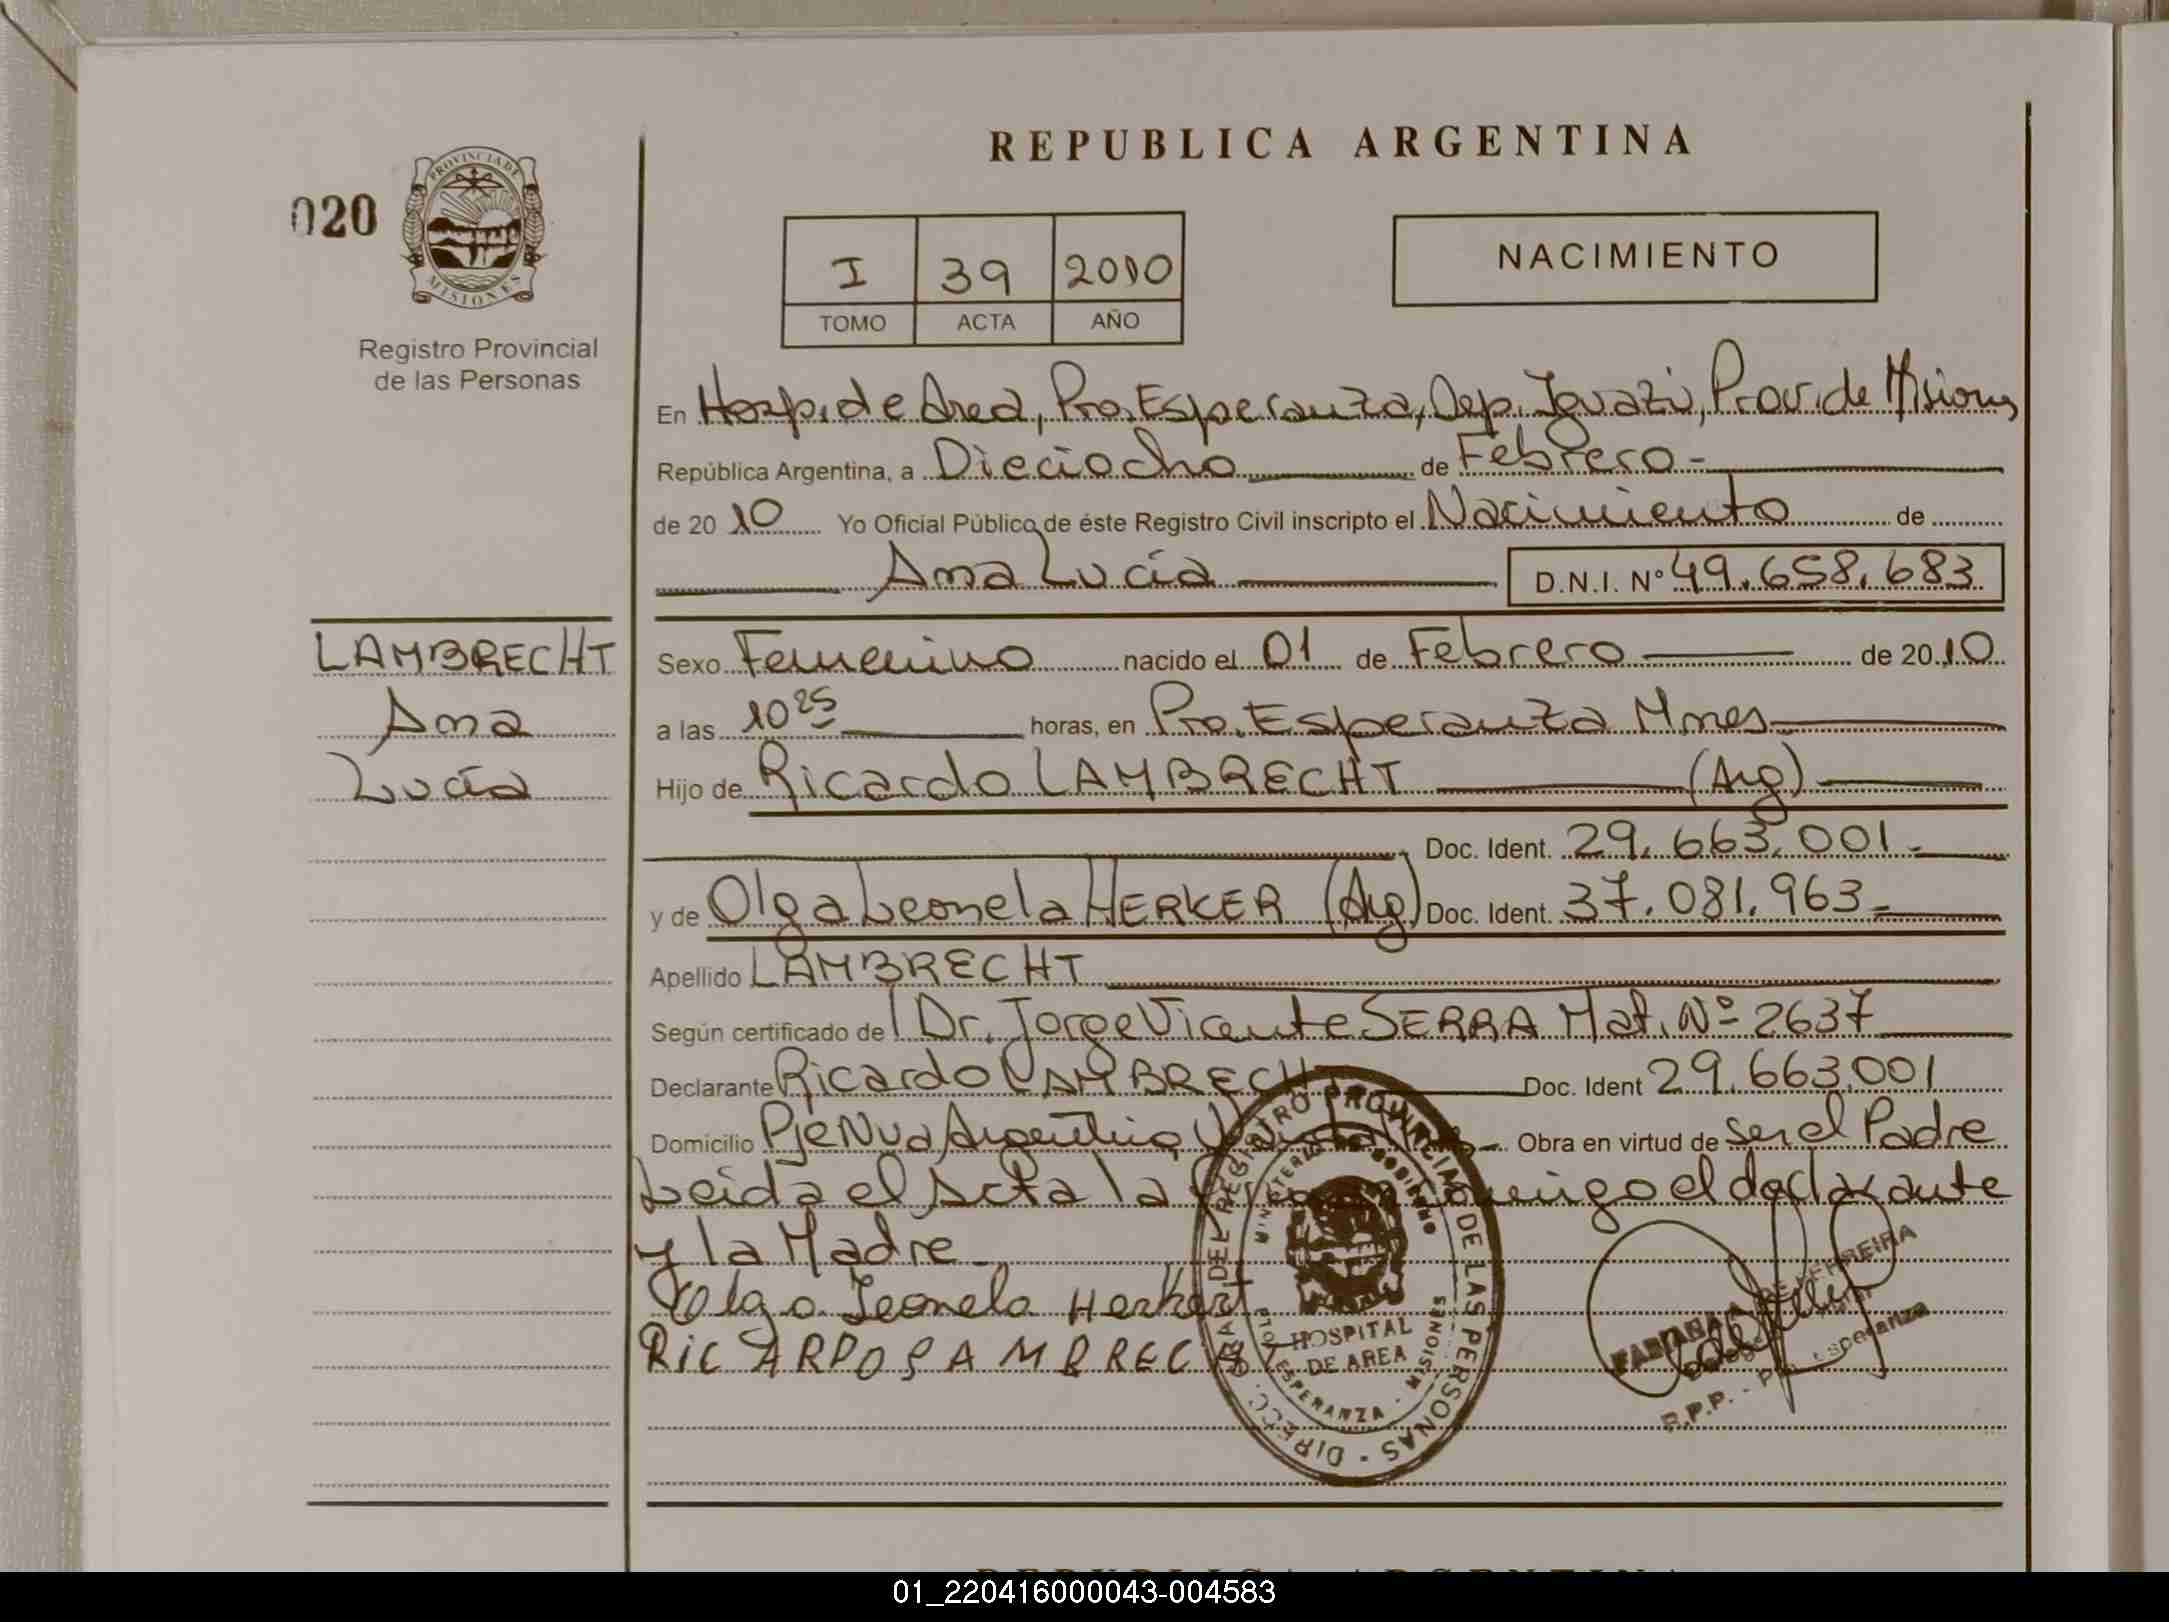 REPUBLICA ARGENTINA
020
PROVINCIA DE
MISIONES
Registro Provincial
de las Personas
I 39 2010
TOMO ACTA AÑO
NACIMIENTO
En Hosp. de Area, Pto. Esperanza, Dep. Iguazú, Prov. de Misiones
República Argentina, a Dieciocho de Febrero -
de 20 10 Yo Oficial Público de éste Registro Civil inscripto el Nacimiento de
Ana Lucía D.N.I. N° 49.658.683
LAMBRECHT
Ana
Lucía
Sexo Femenino nacido el 01 de Febrero de 20 10
a las 10 25 horas, en Pto. Esperanza Mnes
Hijo de Ricardo LAMBRECHT (Arg)
Doc. Ident. 29.663.001.-
y de Olga Leonela HERKER (Arg) Doc. Ident. 37.081.963.-
Apellido LAMBRECHT
Según certificado de Dr. Jorge Vicente SERRA Mat. Nº 2637
Declarante Ricardo LAMBRECHT Doc. Ident 29.663.001
Domicilio Pje Nva Argentina, - Obra en virtud de ser el Padre
Leida el Acta la conmigo el declarante
y la Madre
Olga Leonela Herkert
RICARDO LAMBRECHT
DIRECC. GRAL. DEL REGISTRO PROVINCIAL DE LAS PERSONAS
MINISTERIO DE GOBIERNO
HOSPITAL
DE AREA
PTO. ESPERANZA - MISIONES
FABIANA DE FERREIRA
R.P.P. - Pto. Esperanza
REPUBLICA ARGENTINA
01_220416000043-004583